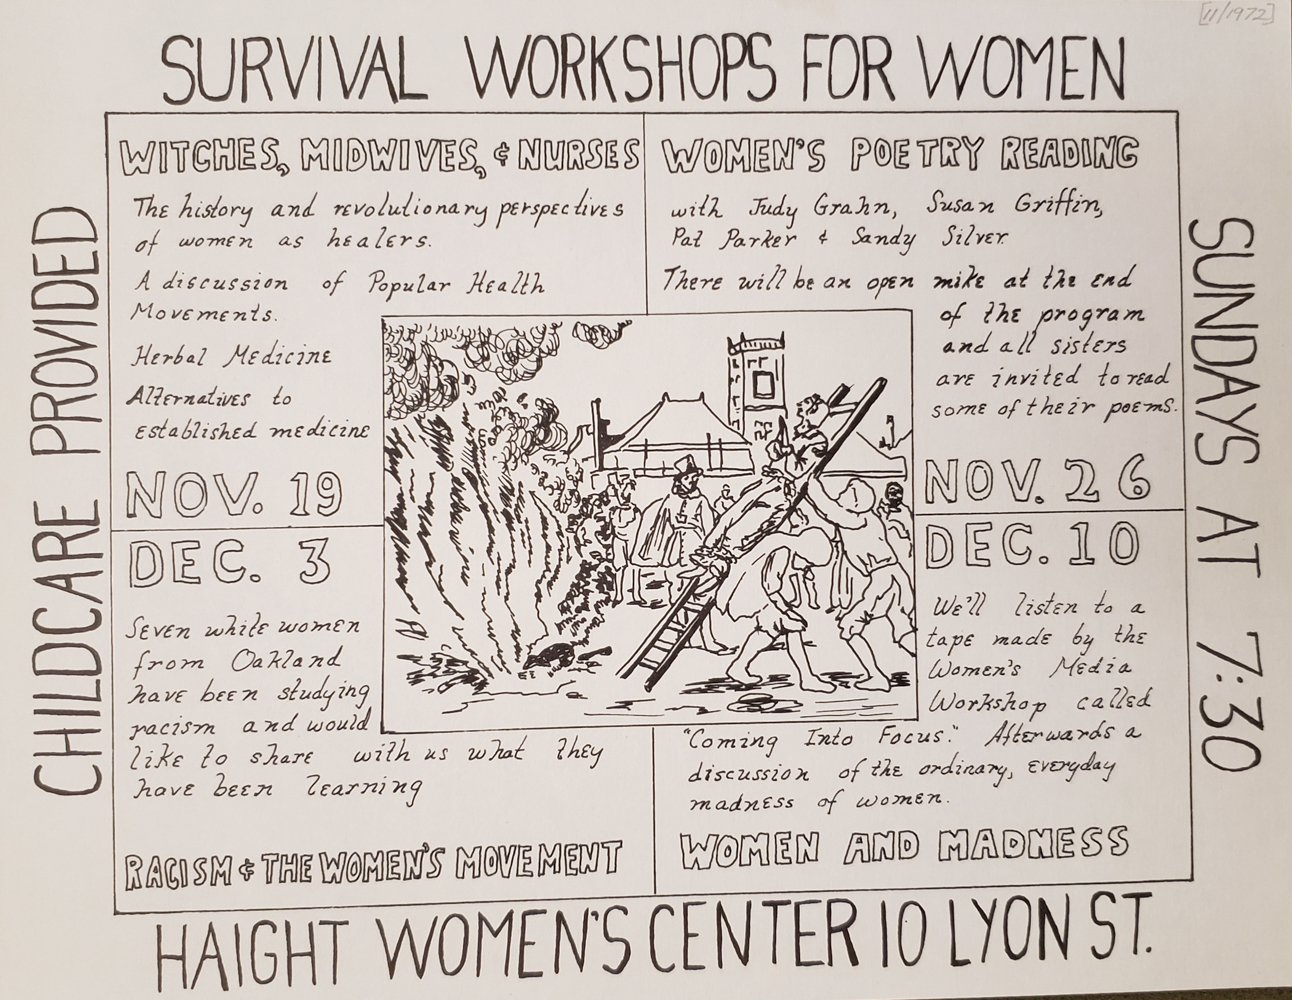 [11/1972]
SURVIVAL WORKSHOPS FOR WOMEN
CHILDCARE PROVIDED
WITCHES, MIDWIVES, & NURSES
The history and revolutionary perspectives
of women as healers.
A discussion of Popular Health
Movements.
Herbal Medicine
Alternatives to
established medicine
NOV. 19
WOMEN'S POETRY READING
with Judy Grahn, Susan Griffin,
Pat Parker & Sandy Silver
There will be an open mike at the end
of the program
and all sisters
are invited to read
some of their poems.
NOV. 26
DEC. 3
Seven white women
from Oakland
have been studying
racism and would
like to share with us what they
have been learning
RACISM & THE WOMEN'S MOVEMENT
DEC. 10
We'll listen to a
tape made by the
Women's Media
Workshop called
"Coming Into Focus." Afterwards a
discussion of the ordinary, everyday
madness of women.
WOMEN AND MADNESS
SUNDAYS AT 7:30
HAIGHT WOMEN'S CENTER 10 LYON ST.